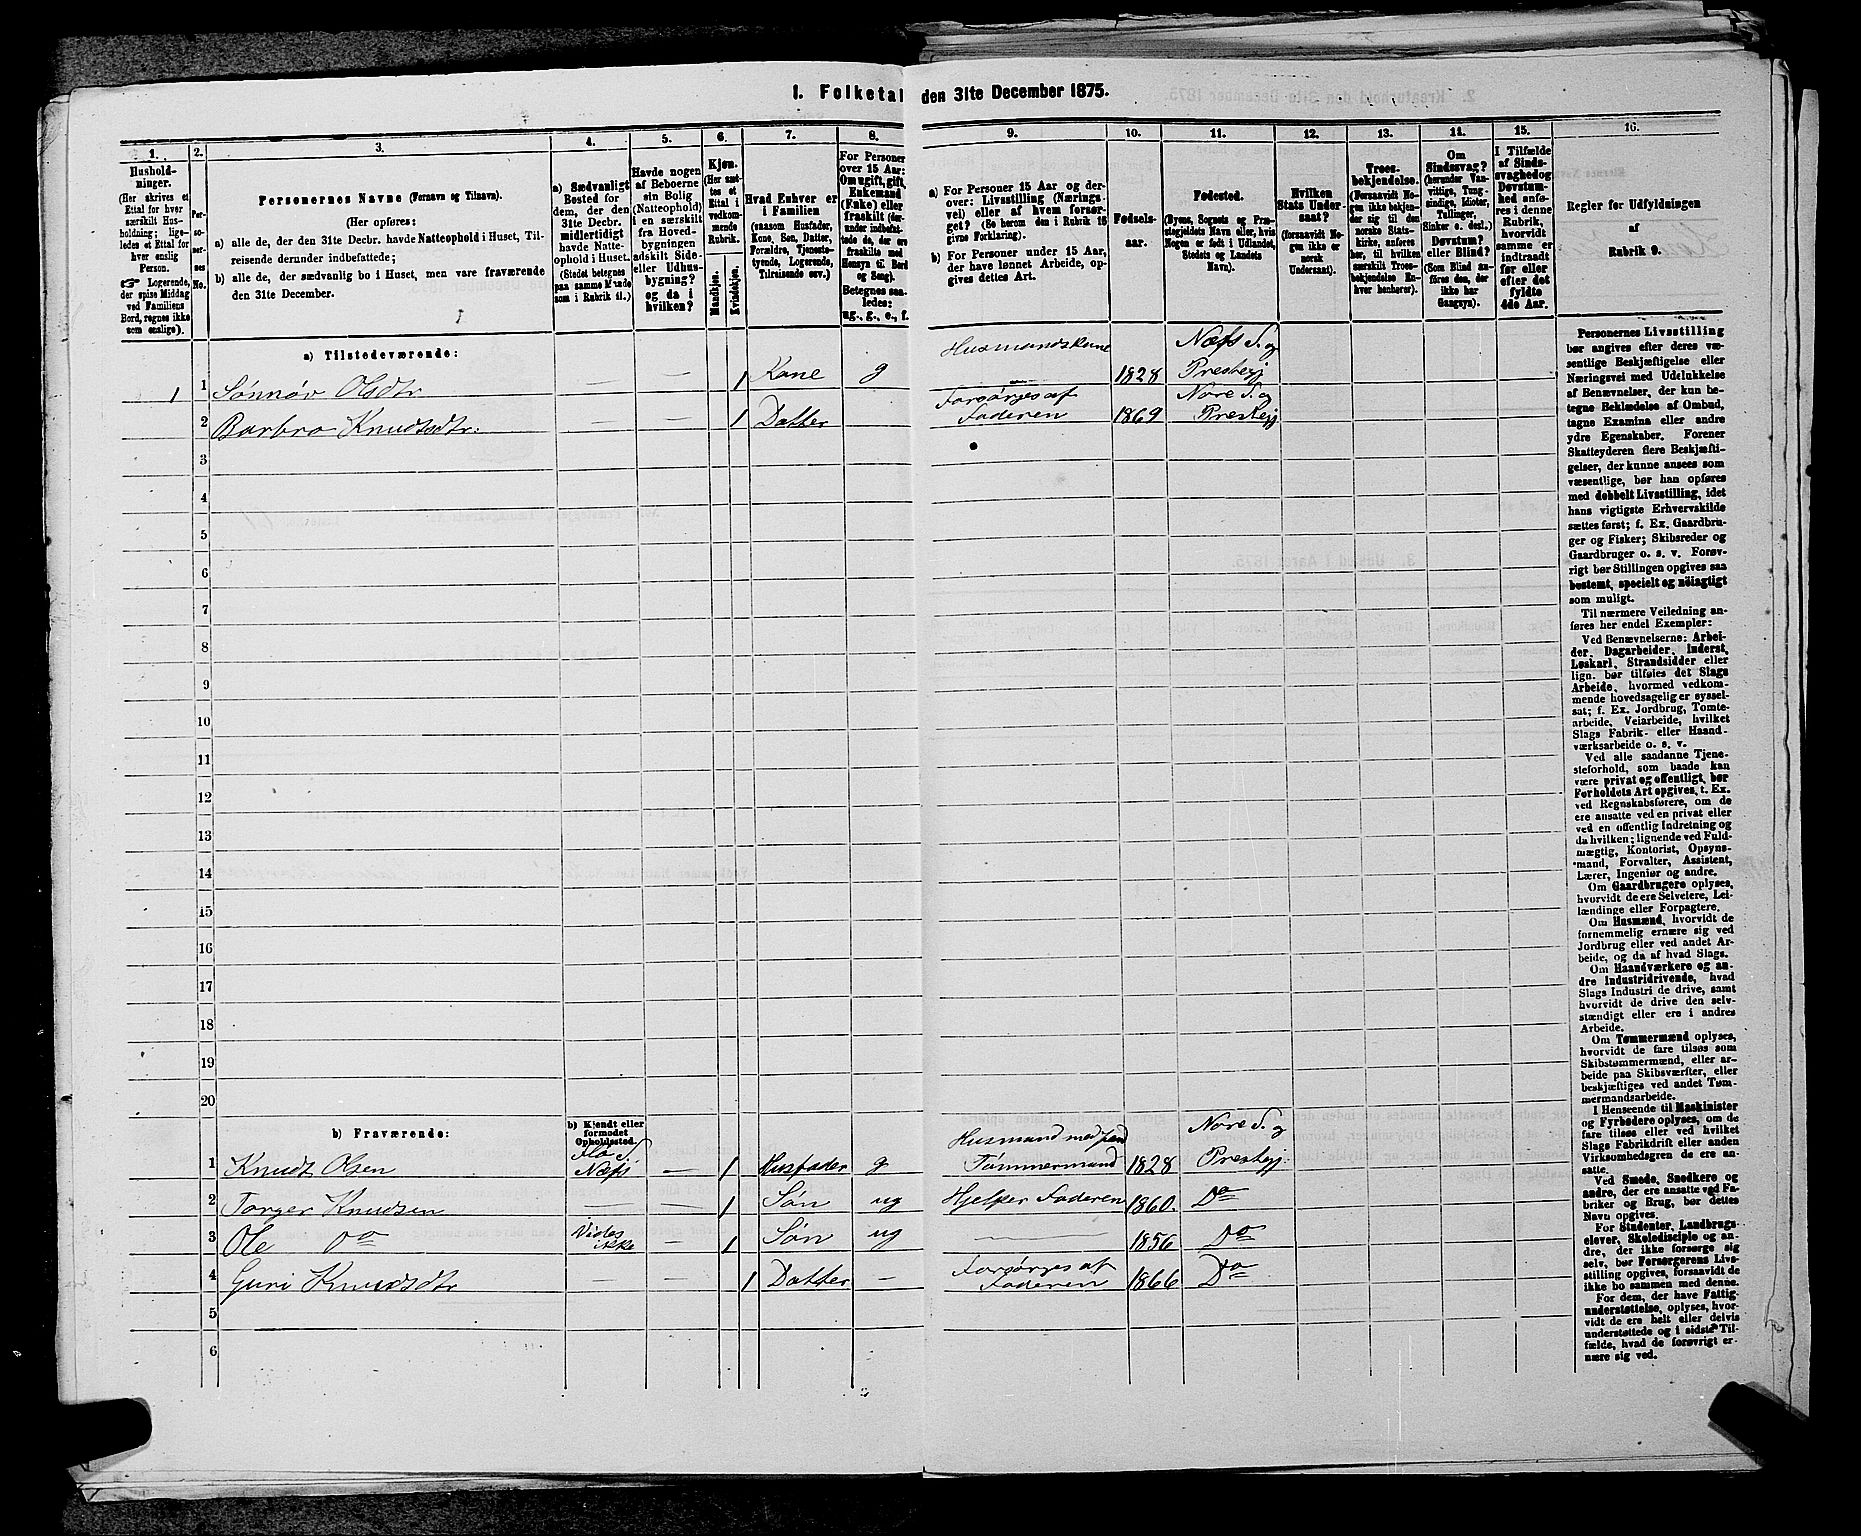 1. Folketal den 31te December 1875.
1. 2. 3. 4. 5. 6. 7. 8. 9. 10. 11. 12. 13. 14. 15. 16.
Hushold-
ninger.
(Her skrives et
Ettal for hver
særskilt Hus-
holdning; lige-
ledes et Ettal for
hver enslig
Person.
Logerende,
der spise Middag
ved Familiens
Bord, regnes ikke
som enslige).
Per-
so-
ner-
nes
No.
Personernes Navne (Fornavn og Tilnavn).
(Her opføres:
a) alle de, der den 31te Decbr. havde Natteophold i Huset, Til-
reisende derunder indbefattede;
b) alle de, der sædvanlig bo i Huset, men vare fraværende
den 31te December.
a) Sædvanligt
Bosted for
dem, der den
31te Decbr.
midlertidigt
havde Natte-
ophold i Huset.
(Stedet betegnes
paa samme Maade
som i Rubrik 11.)
Havde nogen
af Beboerne
sin Bolig
(Natteophold)
i en særskilt
fra Hoved-
bygningen
adskilt Side-
eller Udhus-
bygning?
og da i
hvilken?
Kjøn.
(Her sæt-
tes et
Ettal i
vedkom-
mende
Rubrik.
Mandkjøn.
Kvindekjøn.
Hvad Enhver er
i Familien
(saasom Husfader,
Kone, Søn, Datter,
Forældre, Tjeneste-
tyende, Logerende,
Tilreisende osv.)
For Personer
over 15 Aar:
Om ugift, gift,
Enkemand
(Enke) eller
fraskilt (der-
under indbefat-
tede de, der ere
fraskilte med
Hensyn til Bord
og Seng).
Betegnes saa-
ledes:
ug., g., e., f.
a) For Personer 15 Aar og der-
over: Livsstilling (Nærings-
vei) eller af hvem forsør-
get? (Se herom den i Rubrik 16
givne Forklaring).
b) For Personer under 15 Aar,
der have lønnet Arbeide, op-
gives dettes Art.
Fødsels-
aar.
Fødested.
(Byens, Sognets og Præ-
stegjeldets Navn eller, hvis
Nogen er født i Udlandet,
Stedets og Landets
Navn).
Hvilken
Stats Under-
saat?
(forsaavidt No-
gen ikke er
norsk
Undersaat).
Troes-
bekjendelse.
(Forsaavidt No-
gen ikke bekjen-
der sig til den
norske Stats-
kirke, anføres
her, til hvilken
særskilt Troes-
bekjendelse En-
hver henhører).
Om
Sindssvag?
(herunder Van-
vittige, Tung-
sindige, Idioter,
Tullinger,
Sinker o. desl.).
Døvstum?
eller Blind?
(Som Blind an-
føres den, der
ikke har
Gangsyn).
I Tilfælde
af Sinds-
svaghed og
Døvstum-
hed anfø-
res i denne
Rubrik,
hvorvidt
samme er
indtraadt
før eller
efter det
fyldte
4de Aar.
Regler for Udfyldningen
af
Rubrik 9.
a) Tilstedeværende:
1 1 Sønnøv Olsdtr — — 1 Kone g Husmandskone 1828 Næss S. og Prestegj
2 Barbro Knudtsdtr. — — 1 Datter Forsørges af Faderen 1869 Nore S. og Prestegj
3
4
5
6
7
8
9
10
11
12
13
14
15
16
17
18
19
20
b) Fraværende:
b) Kjendt eller
formodet
Opholdssted.
1 Knudt Olsen Flo S. Næss — 1 Husfader g Husmand med jord Tømmermand 1828 Nore S. og Prestegj.
2 Torger Knudsen — — 1 Søn ug Hjelper Faderen 1860. Do
3 Ole Do Vides ikke — 1 Søn ug — 1856 Do
4 Guri Knudsdtr — — 1 Datter — Forsørges af Faderen 1866 Do
5
6
Personernes Livsstilling
bør angives efter deres væ-
sentlige Beskjæftigelse eller
Næringsvei med Udelukkelse
af Benævnelser, der kun be-
tegne Beklædelse af Ombud,
tagne Examina eller andre
ydre Egenskaber. Forener
Skatteyderen flere Beskjæfti-
gelser, der kunne ansees som
væsentlige, bør han opføres
med dobbelt Livsstilling, idet
hans vigtigste Erhvervskilde
sættes først; f. Ex. Gaardbru-
ger og Fisker; Skibsreder og
Gaardbruger o. s. v. Forøv-
rigt bør Stillingen opgives saa
bestemt, specielt og nøiagtigt
som muligt.
Til nærmere Veiledning an-
føres her endel Exempler:
Ved Benævnelserne: Arbei-
der, Dagarbeider, Inderst,
Løskarl, Strandsidder eller
lign. bør tilføies det Slags
Arbeide, hvormed vedkom-
mende hovedsagelig er syssel-
sat; f. Ex. Jordbrug, Tomte-
arbeide, Veiarbeide, hvilket
Slags Fabrik- eller Haand-
værksarbeide o. s. v.
Ved alle saadanne Tjene-
steforhold, som baade kan
være privat og offentligt, bør
Forholdets Art opgives, t. Ex.
ved Regnskabsførere, om de
ere ansatte ved en privat eller
ved en offentlig Indretning og
da hvilken; lignende ved Fuld-
mægtig, Kontorist, Opsyns-
mand, Forvalter, Assistent,
Lærer, Ingeniør og andre.
Om Gaardbrugere oplyses,
hvorvidt de ere Selveiere, Lei-
lændinge eller Forpagtere.
Om Husmænd, hvorvidt de
fornemmelig ernære sig ved
Jordbrug eller ved andet Ar-
beide, og da af hvad Slags.
Om Haandværkere og an-
dre Industridrivende, hvad
Slags Industri de drive, samt
hvorvidt de drive den selv-
stændigt eller ere i andres
Arbeide.
Om Tømmermænd oplyses,
hvorvidt de fare tilsøs som
Skibstømmermænd, eller ar-
beide paa Skibsværfter, eller
beskjæftiges ved andet Tøm-
mermandsarbeide.
I Henseende til Maskinister
og Fyrbødere oplyses, om de
fare tilsøs eller ved hvilket
Slags Fabrikdrift eller anden
Virksomhedsgren de ere an-
satte.
Ved Smede, Snedkere og
andre, der ere ansatte ved Fa-
briker og Brug, bør dettes
Navn opgives.
For Studenter, Landbrugs-
elever, Skoledisciple og an-
dre, der ikke forsørge sig
selv, bør Forsørgerens Livs-
stilling opgives, forsaavidt de
ikke bo sammen med denne.
For dem, der have Fattig-
understøttelse, oplyses, hvor-
vidt de ere helt eller delvis
understøttede og i sidste Til-
fælde, hvad de forøvrigt er-
nære sig ved.